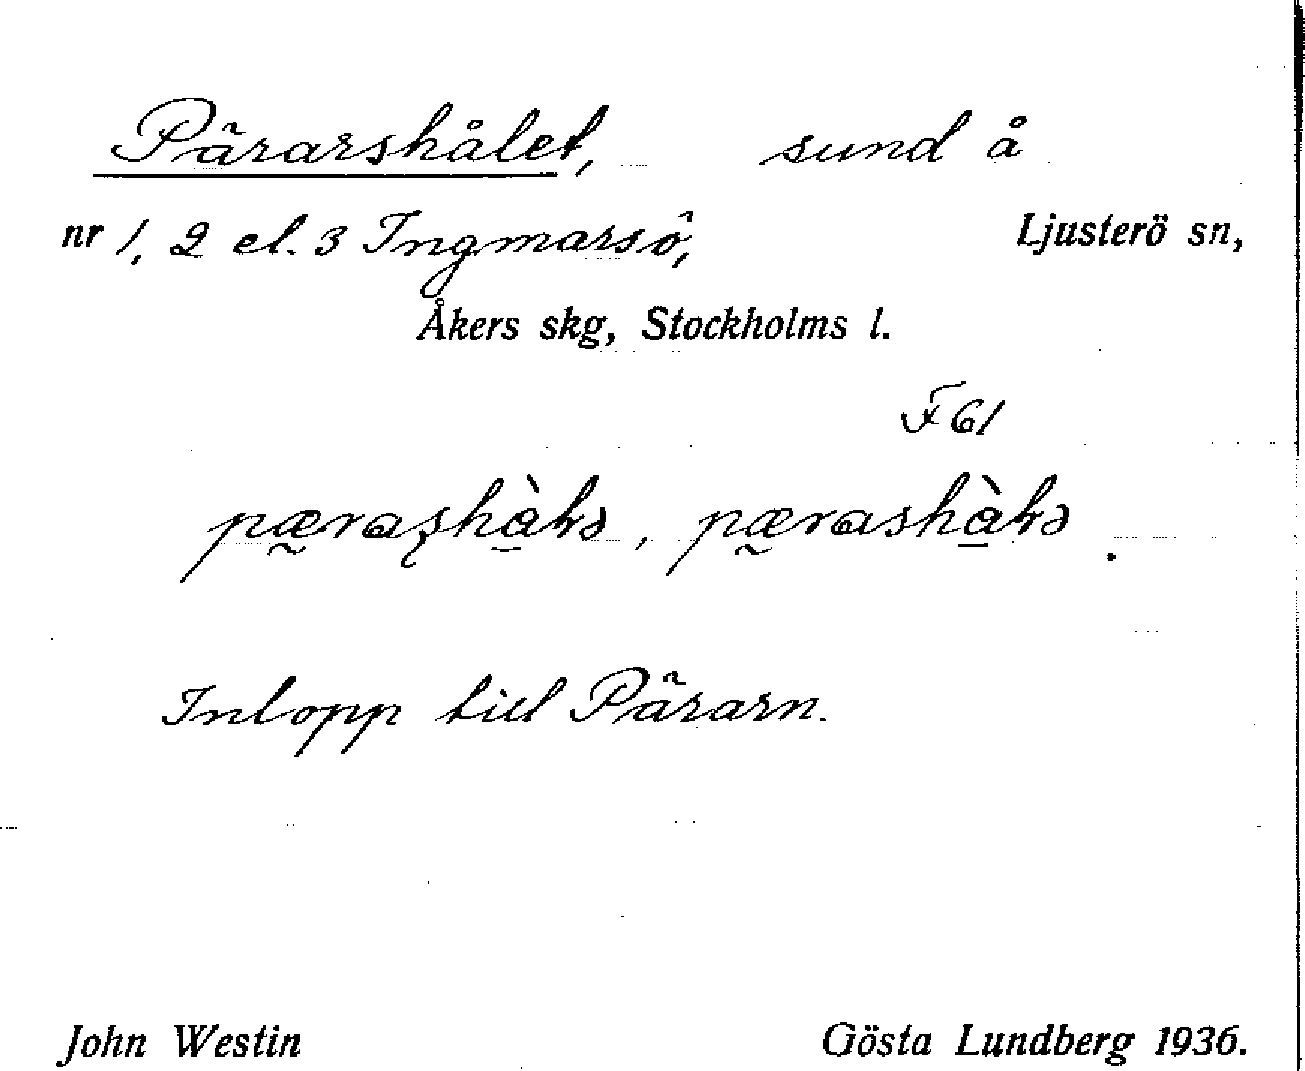 Pärarshålet, sund å
nr 1, 2 el. 3 Ingmarsö, Ljusterö sn,
Åkers skg, Stockholms l.
F 61
Inlopp till Pärarn.
John Westin Gösta Lundberg 1936.